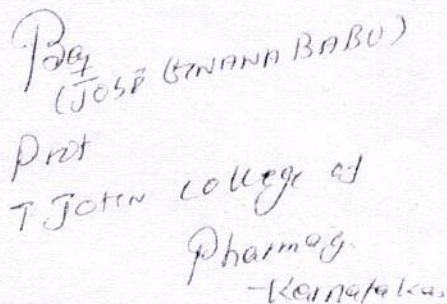 (JOSE GNANA BABU)
Prof
T JOHN college of
Pharmacy
-Karnataka